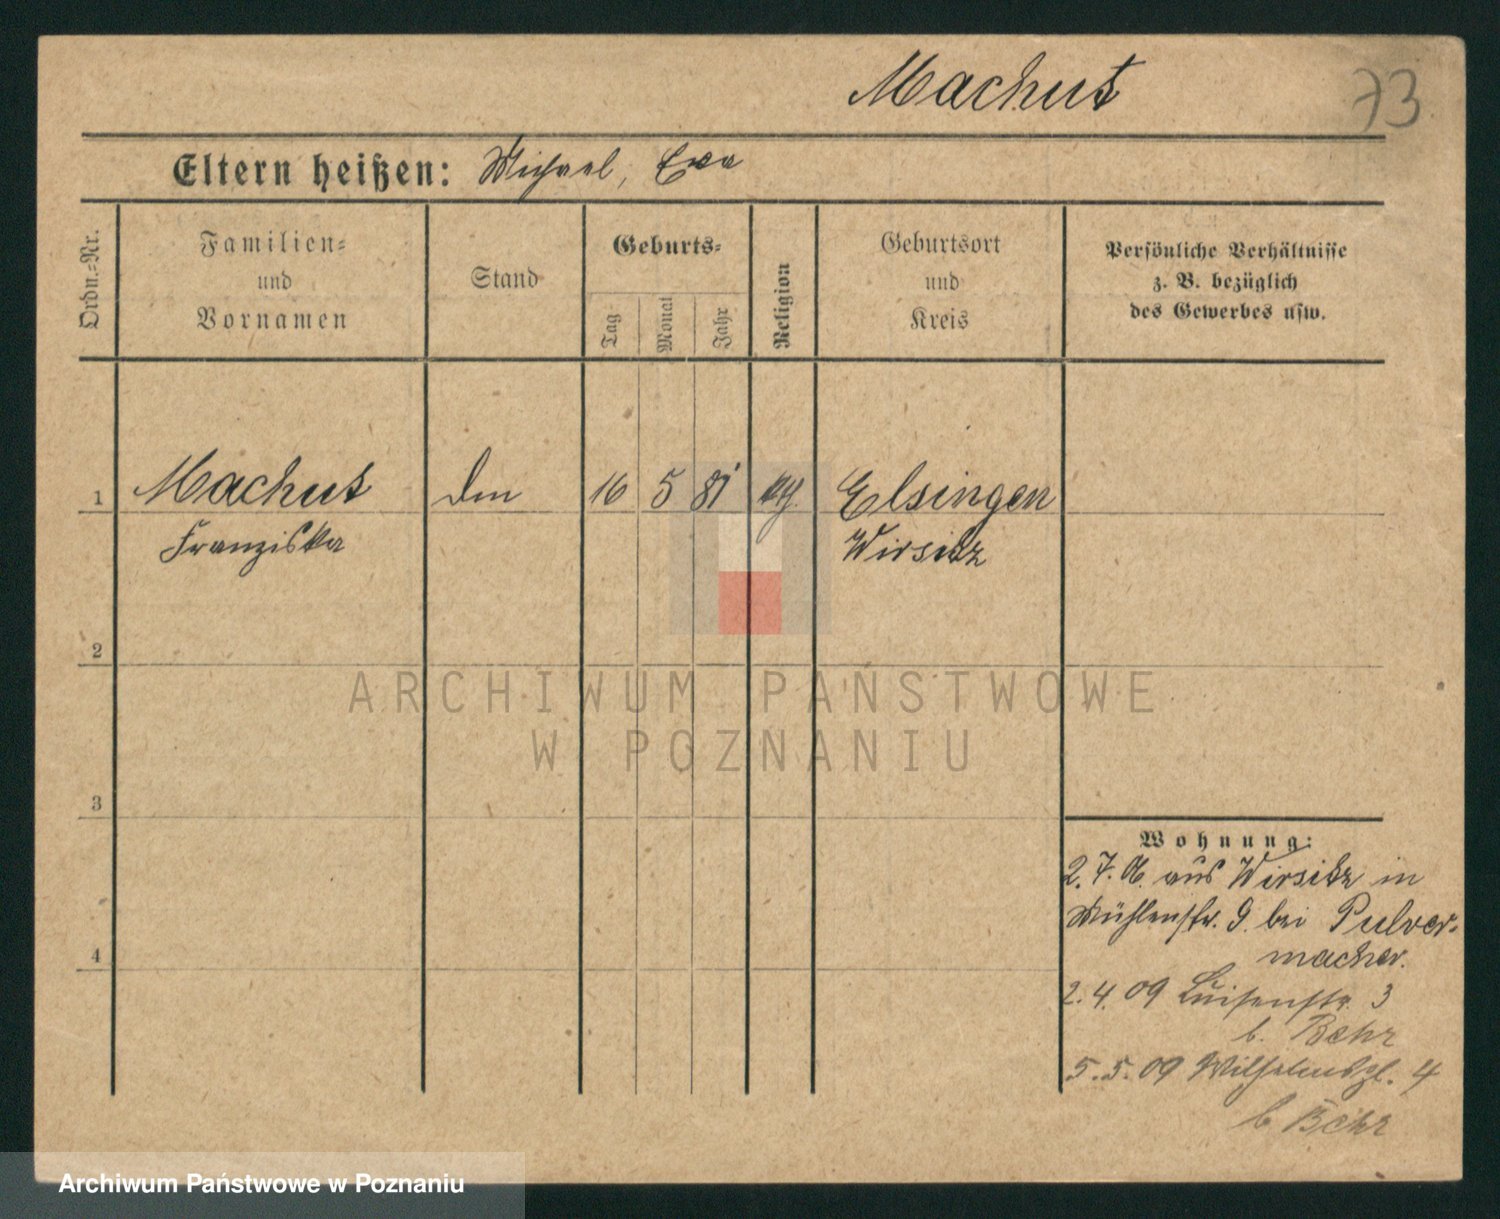 Machut
73
Eltern heißen: Michael, Eva
Ordn.=Nr.
Familien=
und
Vornamen
Stand
Geburts=
Tag
Monat
Jahr
Religion
Geburtsort
und
Kreis
Persönliche Verhältnisse
z. B. bezüglich
des Gewerbes usw.
1 Machut 16 5 81 Elsingen
Franziska Wirsitz
2
3
4
Wohnung:
2. 7. 06. aus Wirsitz in
Mühlenstr. 9. bei Pulver-
macher.
2. 4. 09 Luisenstr. 3
b. Behr
5. 5. 09 Wilhelmspl. 4
b Behr
ARCHIWUM PAŃSTWOWE
W POZNANIU
Archiwum Państwowe w Poznaniu